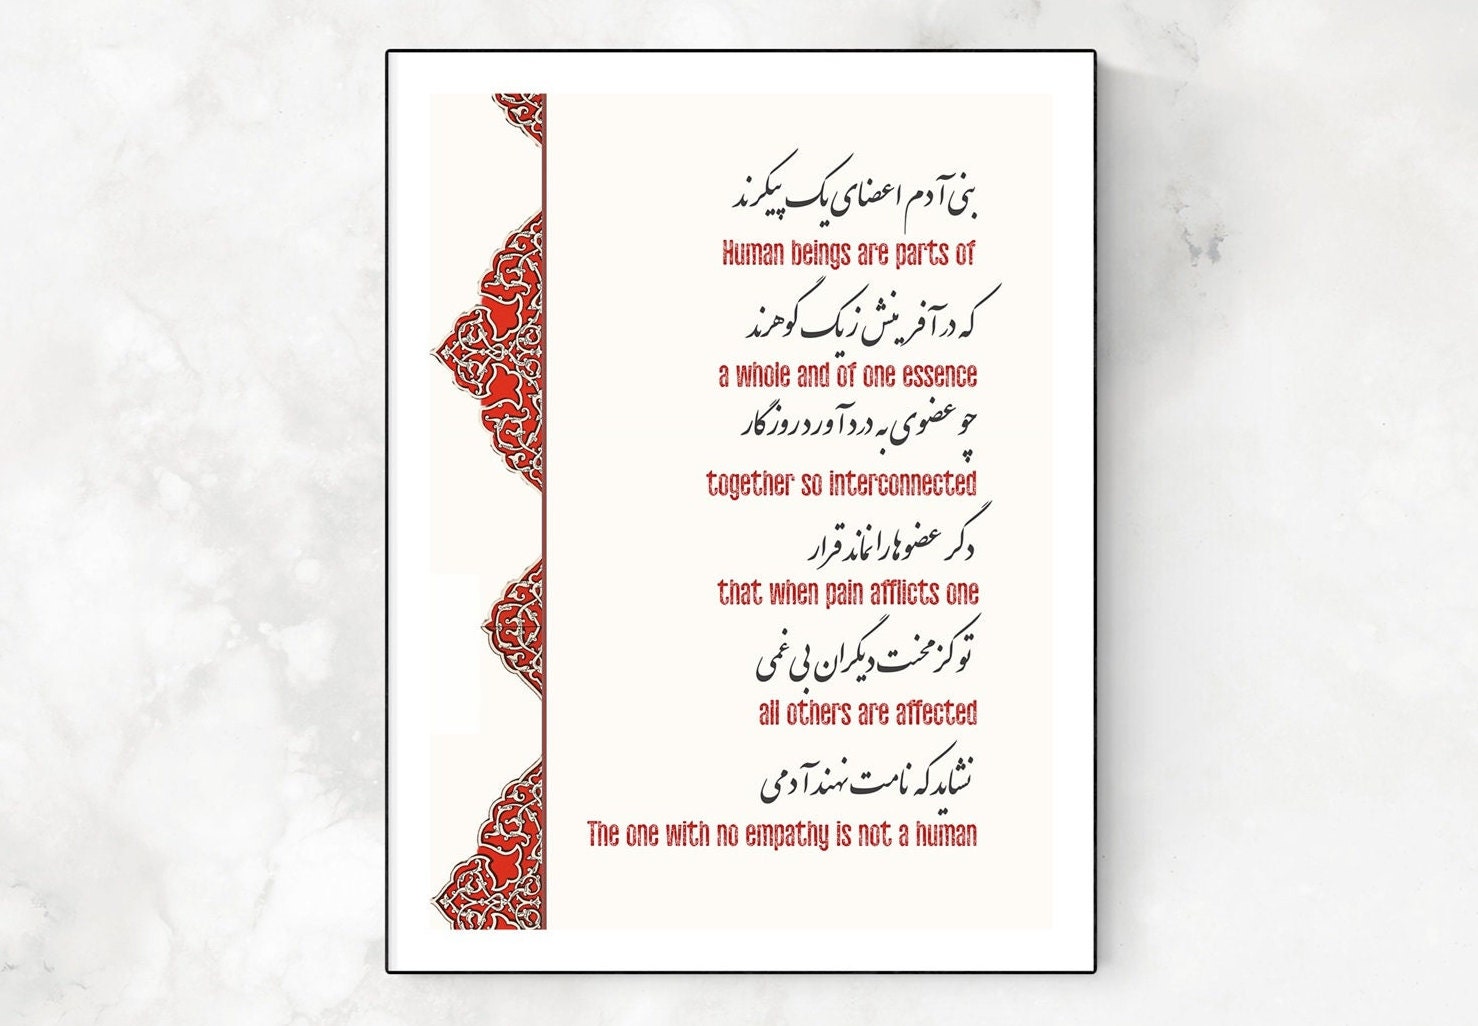 بنی آدم اعضای یک پیکرند
Human beings are parts of
که در آفرینش ز یک گوهرند
a whole and of one essence
چو عضوی به درد آورد روزگار
together so interconnected
دگر عضوها را نماند قرار
that when pain afflicts one
تو کز محنت دیگران بی غمی
all others are affected
نشاید که نامت نهند آدمی
The one with no empathy is not a human